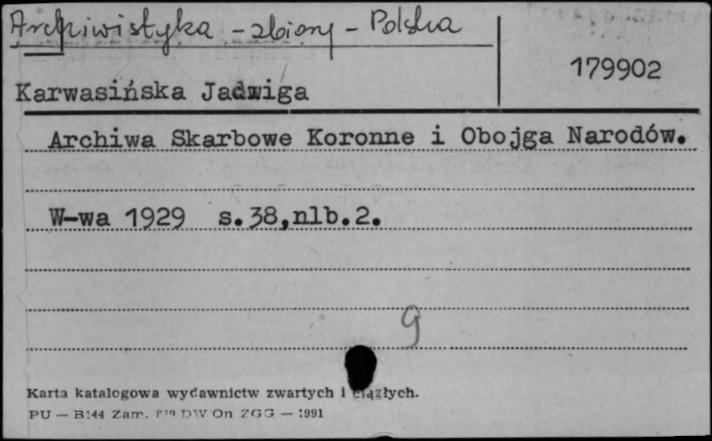 Archiwistyka - zbiory - Polska
179902
Karwasińska Jadwiga
Archiwa Skarbowe Koronne i Obojga Narodów.
W-wa 1929 s.38,nlb.2.
9
Karta katalogowa wydawnictw zwartych i ciągłych.
PU — B144 Zam. DW On ZGG — 1991